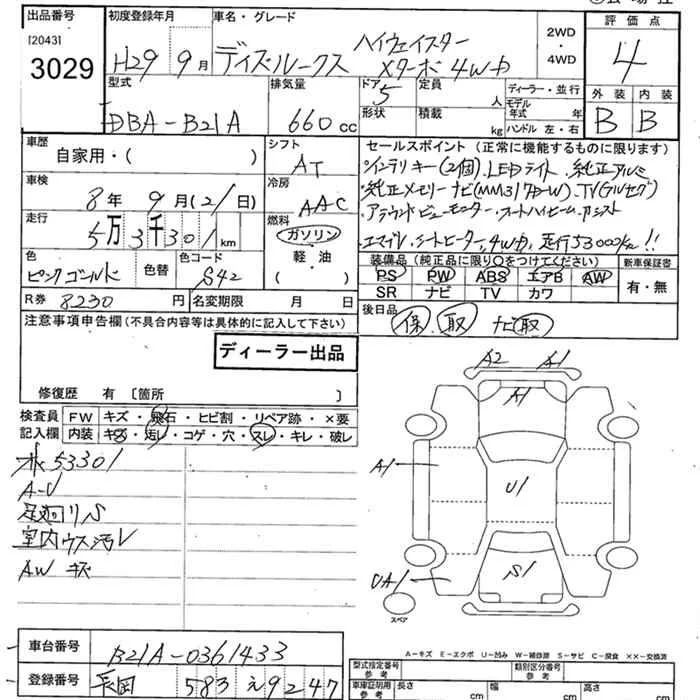 出品番号 初度登録年月 車名・グレード 評価点
[2043]
3029
H29 9月 デイズルークス ハイウェイスター
Xターボ 4WD
2WD
・
4WD
4
型式 排気量 ドア 定員 ディーラー・並行 外装 内装
DBA-B21A 660cc 5 人 モデル年式 年 B B
形状 積載 kg ハンドル 左・右
車歴 シフト セールスポイント (正常に機能するものに限ります)
自家用・( ) AT インテリキー(2個).LEDライト.純正アルミ
車検 冷房 純正メモリーナビ(MM317D-W).TV(フルセグ)
8年 9月(21日) AAC アラウンドビューモニター.オートハイビーム.アシスト
走行 燃料
5万3千301km ガソリン エマブレ.シートヒーター,4WD,走行53000km!!
色 色替 色コード 軽油 装備品 (純正品に限り○をつけてください) 新車保証書
ピンクゴールド S42 ( ) PS PW ABS エアB AW 有・無
R券 8230円 名変期限 月 日 SR ナビ TV カワ
注意事項申告欄 (不具合内容等は具体的に記入して下さい) 後日品 保 取 ナビ取
ディーラー出品
修復歴 有 〔箇所 〕
検査員 FW キズ・飛石・ヒビ割・リペア跡・×要
記入欄 内装 キズ・汚レ・コゲ・穴・スレ・キレ・破レ
A2 A1
A1
53301
A-U
A1
U1
足廻りS
室内ウス汚レ
AWキズ
UA1
S1
スペア
A-キズ E-エクボ U-凹み W-補修跡 S-サビ C-腐食 ××-交換済
車台番号 B21A-0361433
型式指定番号 類別区分番号
参考 参考
登録番号 長岡 583 え 9247
車庫証明用 長さ 幅 高さ
参考 cm cm cm